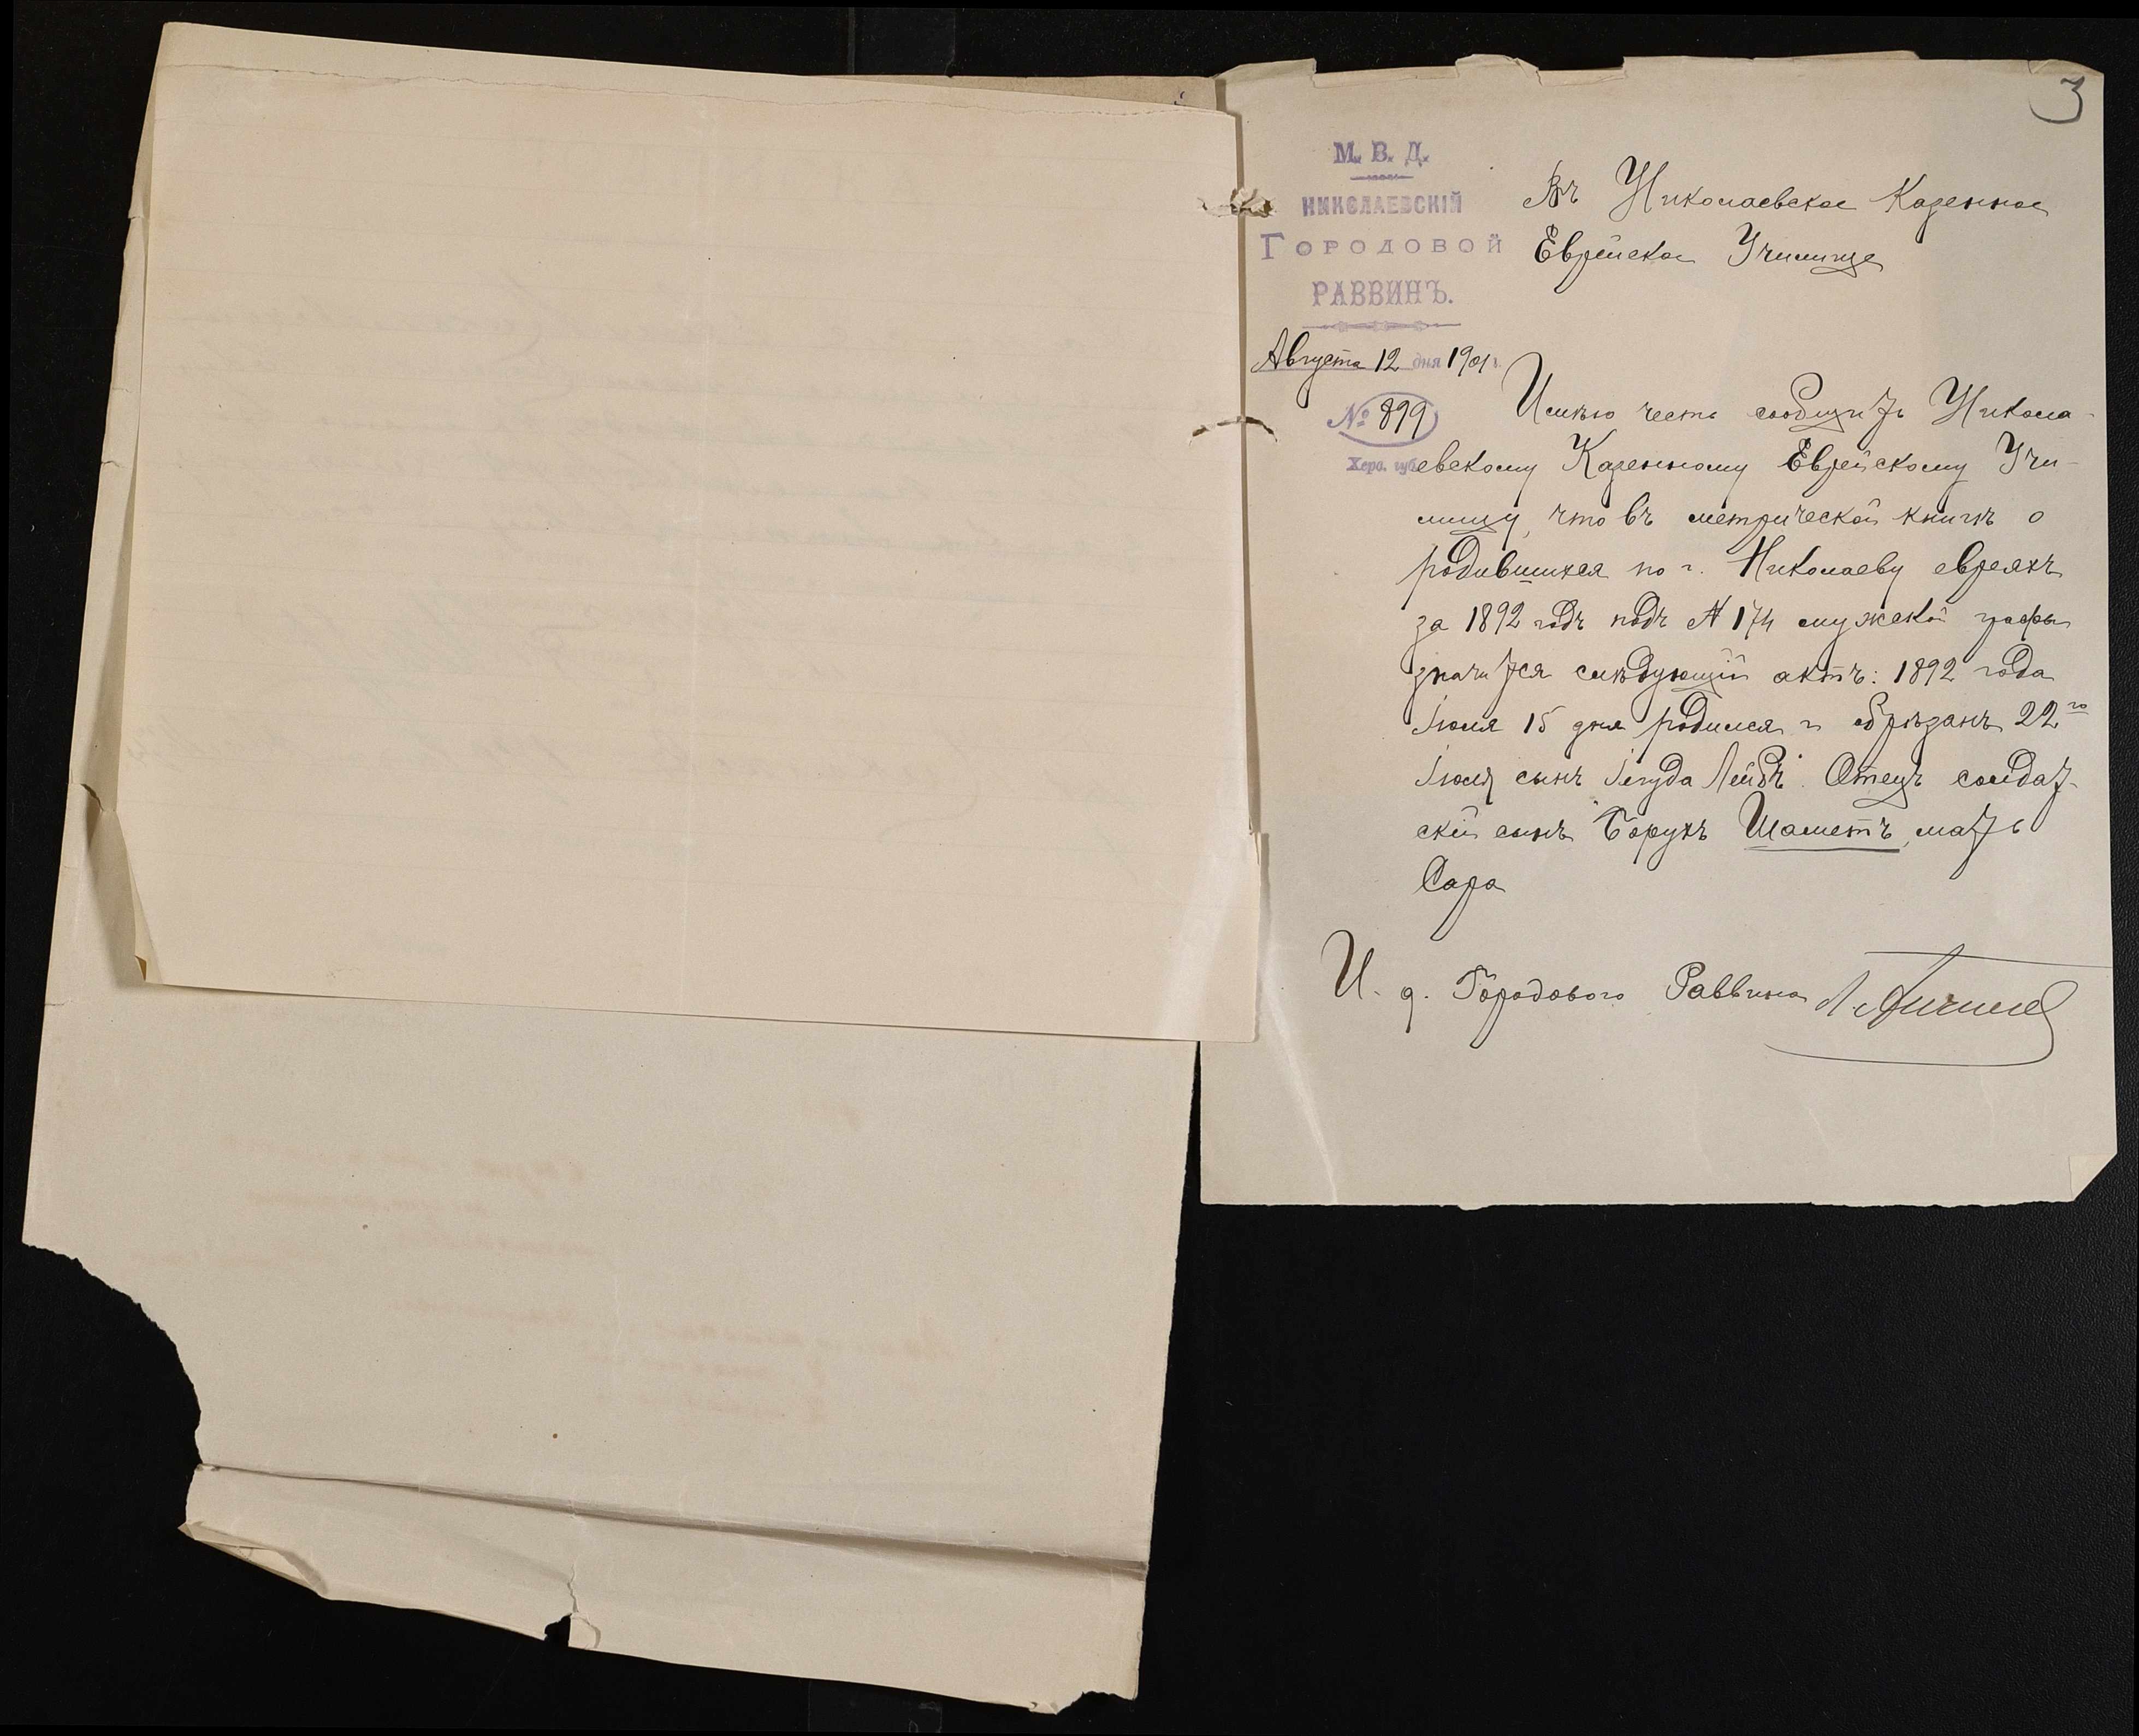 3
М. В. Д.
НИКОЛАЕВСКІЙ
ГОРОДОВОЙ
РАВВИНЪ.
Августа 12 дня 1901 г.
№ 899
Херс. губ.
Въ Николаевское Казенное
Еврейское Училище
Имѣю честь сообщить Никола-
евскому Казенному Еврейскому Учи-
лищу, что въ метрической книгѣ о
родившихся по г. Николаеву евреяхъ
за 1892 годъ подъ № 174 мужской графы
значится слѣдующій актъ: 1892 года
Іюля 15 дня родился и обрѣзанъ 22го
Іюля сынъ Іегуда Лейбъ. Отецъ солдат-
скій сынъ Борухъ Шаметъ, мать
Сара
И. д. Городового Раввина